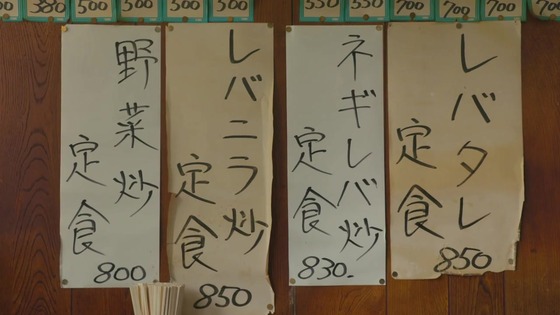 380
500
500
500
500
550
550
700
700
700
レバタレ
定食
850
ネギレバ炒
定食
830.
レバニラ炒
定食
850
野菜炒
定食
800